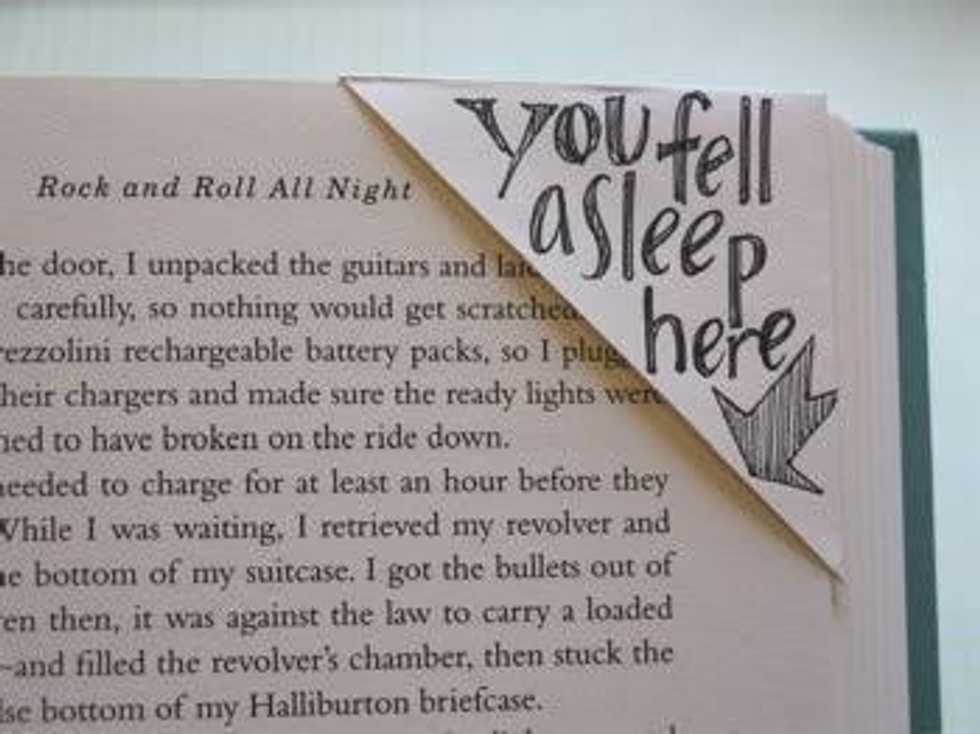 you fell
asleep
here
Rock and Roll All Night
he door, I unpacked the guitars and
carefully, so nothing would get scratched
rezzolini rechargeable battery packs, so I plug
heir chargers and made sure the ready lights were
ned to have broken on the ride down.
needed to charge for at least an hour before they
While I was waiting, I retrieved my revolver and
he bottom of my suitcase. I got the bullets out of
en then, it was against the law to carry a loaded
—and filled the revolver's chamber, then stuck the
lse bottom of my Halliburton briefcase.